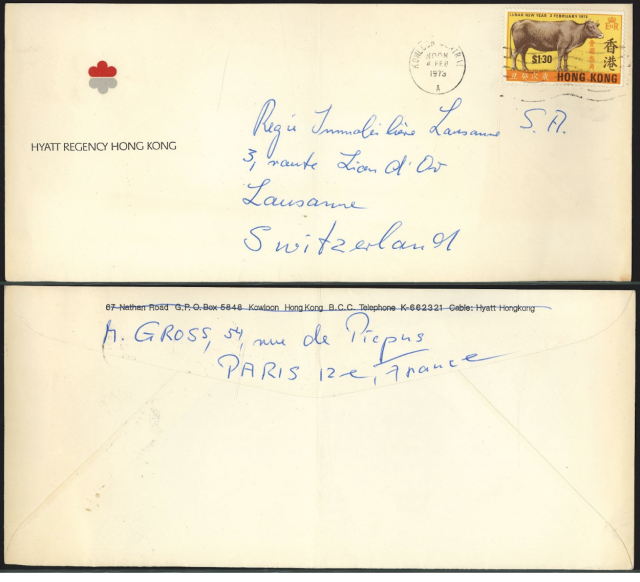 LUNAR NEW YEAR 3 FEBRUARY 1973
E II R
$1.30
香港
HONG KONG
NOON
4 FEB
1973
A
HYATT REGENCY HONG KONG
Regie Immobilière Lausanne S.A.
3, route Lion d'Or
Lausanne
Switzerland
67 Nathan Road G.P.O. Box 5848 Kowloon Hong Kong B.C.C. Telephone K-662321 Cable: Hyatt Hongkong
M. GROSS, 54, rue de Picpus
PARIS 12e, France